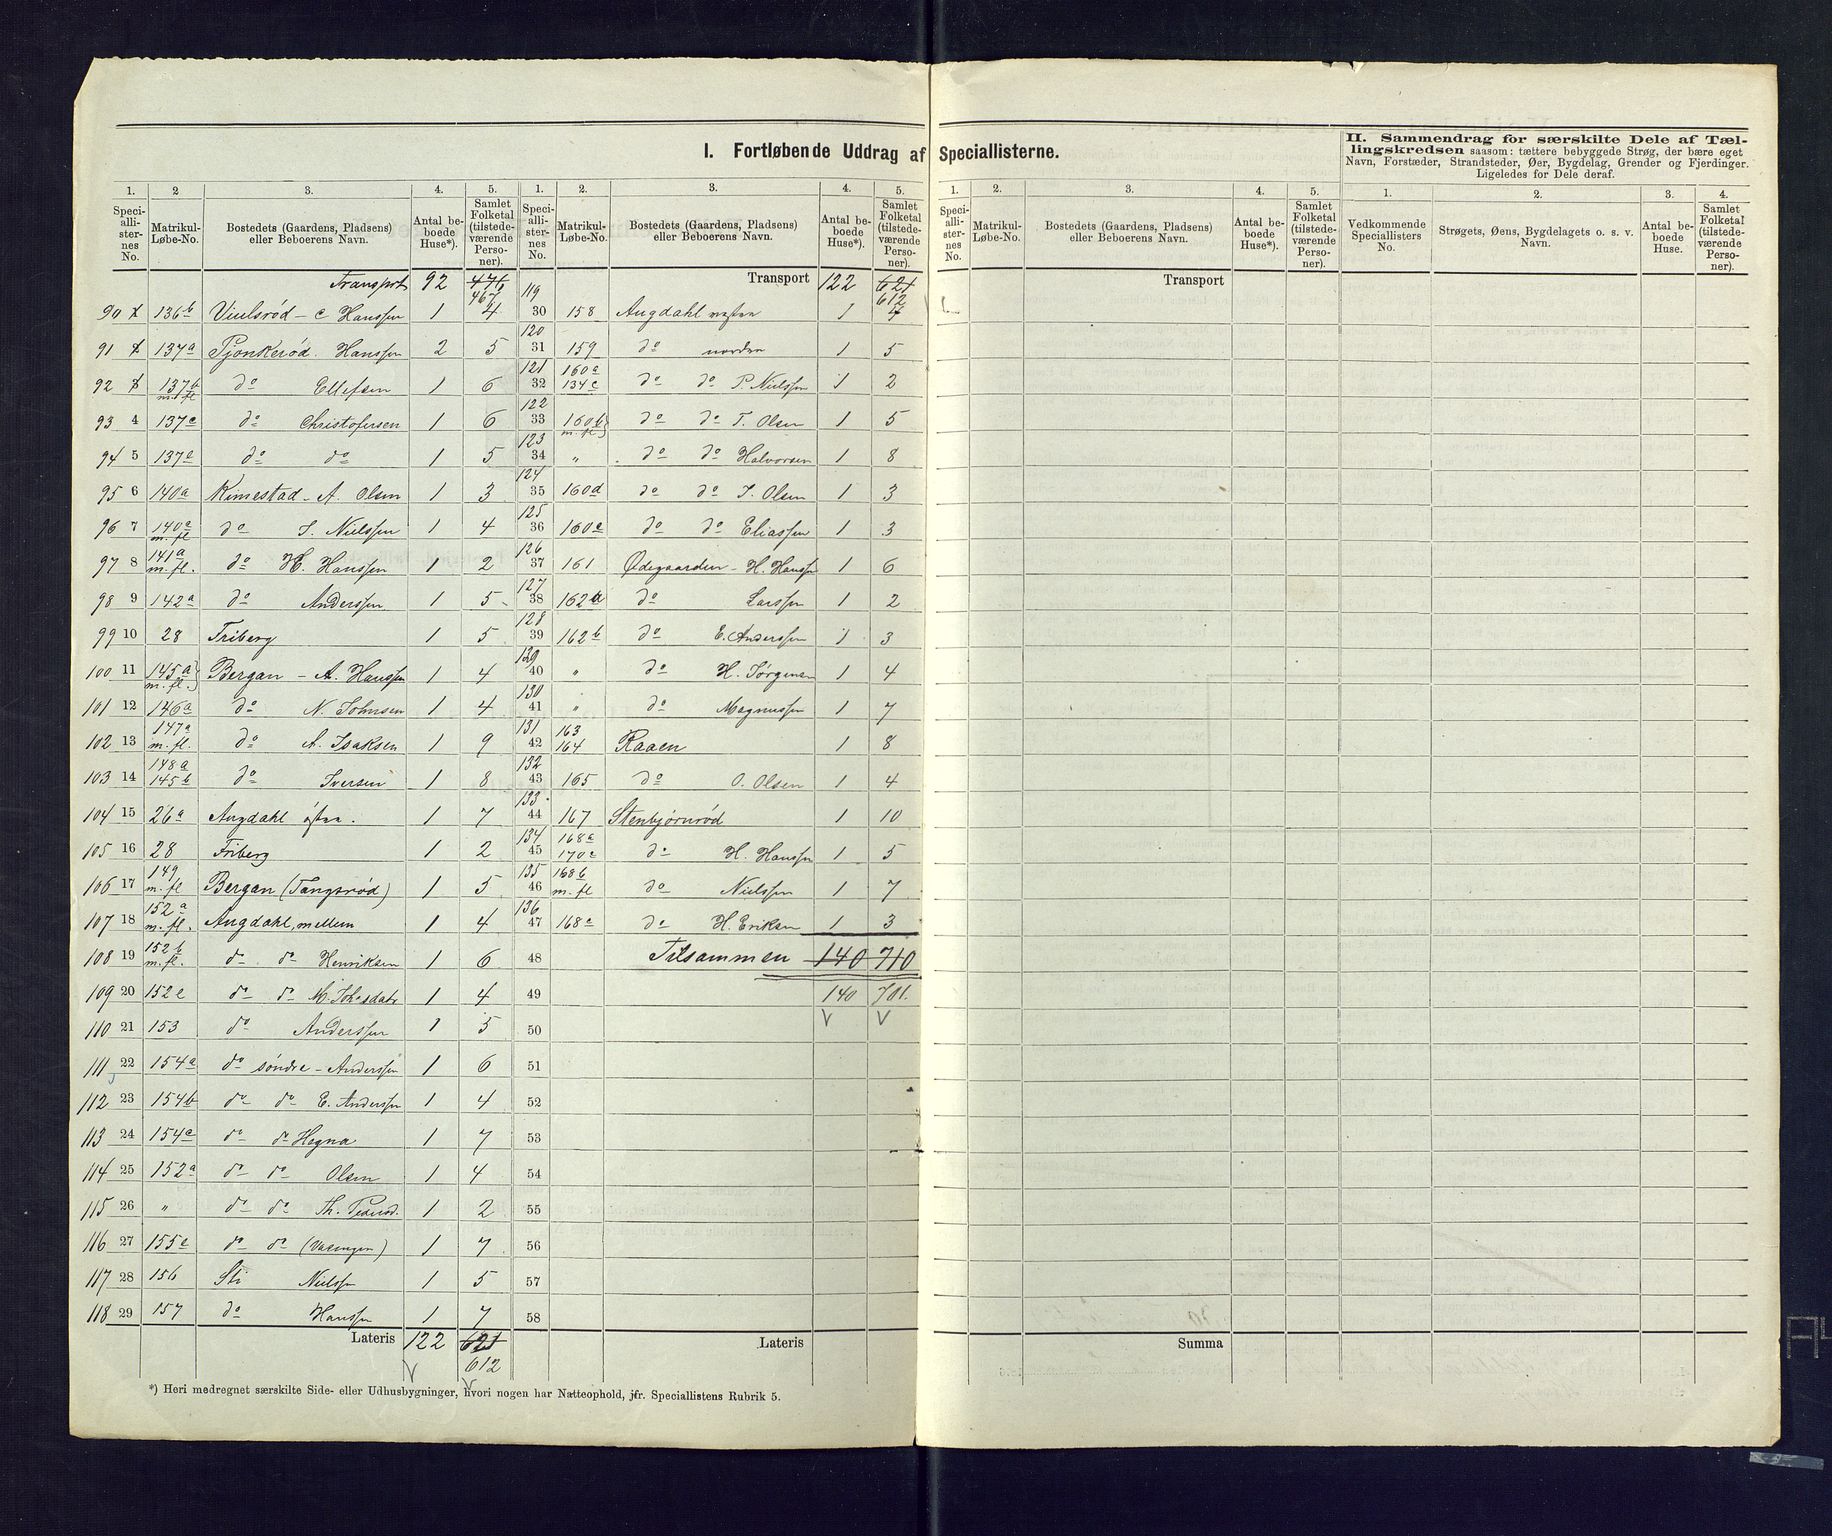 I. Fortløbende Uddrag af Speciallisterne.
II. Sammendrag for særskilte Dele af Tællingskredsen saasom: tættere bebyggede Strøg, der bære eget Navn, Forstæder, Strandsteder, Øer, Bygdelag, Grender og Fjerdinger. Ligeledes for Dele deraf.
1. 2 3. 4. 5.
Speciallisternes No. Matrikul-Løbe-No. Bostedets (Gaardens, Pladsens) eller Beboerens Navn. Antal beboede Huse*). Samlet Folketal (tilstedeværende Personer).
Transport 92 476 467
90 1 136b Viulsrød - c Hanssen 1 4
91 2 137a Pjonkerød. Hanssen 2 5
92 3 137b m. fl do Ellefsen 1 6
93 4 137c do Christofersen 1 6
94 5 137e do do 1 5
95 6 140a Kimestad - A. Olsen 1 3
96 7 140e m. fl do J. Nielssen 1 4
97 8 141a m. fl. do H. Hanssen 1 2
98 9 142a do Anderssen 1 5
99 10 28 Friberg 1 5
100 11 145a m. fl. Bergan - A. Hanssen 1 4
101 12 146a do N. Johnsen 1 4
102 13 147a m. fl. do A. Isaksen 1 9
103 14 148a 145b do Iversen 1 8
104 15 26a Augdahl østre. 1 7
105 16 28 Friberg 1 2
106 17 149 m. fl Bergan (Tangsrød) 1 5
107 18 152a m. fl. Augdahl, mellem 1 4
108 19 152b m. fl. do do Henriksen 1 6
109 20 152c do do M. Johsdatr 1 4
110 21 153 do Anderssen 1 5
111 22 154a do søndre - Anderssen 1 6
112 23 154b do do E. Anderssen 1 4
113 24 154c do do Hegna 1 7
114 25 152a do do Olsen 1 4
115 26 " do do Th. 1 2
116 27 155c do do 1 7
117 28 156 Sti Nielssen 1 5
118 29 157 do Hanssen 1 7
Lateris 122 621
612
1. 2. 3. 4. 5.
Speciallisternes No. Matrikul-Løbe-No. Bostedets (Gaardens, Pladsens) eller Beboerens Navn. Antal beboede Huse*). Samlet Folketal (tilstedeværende Personer).
Transport 122 621 612
119 30 158 Augdahl vestre 1 4
120 31 159 do nordre 1 5
121 32 160a 134c do do P. Nielssen 1 2
122 33 160b m. fl. do do T. Olsen 1 5
123 34 " do do Halvorsen 1 8
124 35 160d do do J. Olsen 1 3
125 36 160e do do Eliassen 1 3
126 37 161 Ødegaarden - H. Hanssen 1 6
127 38 162a do Larssen 1 2
128 39 162b do E. Anderssen 1 3
129 40 " do H. Jørgensen 1 4
130 41 " do Magnussen 1 7
131 42 163 164 Raaen 1 8
132 43 165 do O. Olsen 1 4
133 44 167 Stenbjørnrød 1 10
134 45 168a 170c do H. Hanssen 1 5
135 46 168b m. fl do Nielssen 1 7
136 47 168c do H. Eriksen 1 3
48 Tilsammen 140 710
49 140 701.
50
51
52
53
54
55
56
57
58
Lateris
*) Heri medregnet særskilte Side- eller Udhusbygninger, hvori nogen har Natteophold, jfr. Speciallistens Rubrik 5.
1. 2. 3. 4. 5.
Speciallisternes No. Matrikul-Løbe-No. Bostedets (Gaardens, Pladsens) eller Beboerens Navn. Antal beboede Huse*). Samlet Folketal (tilstedeværende Personer).
Transport
Summa
1. 2. 3. 4.
Vedkommende Speciallisters No. Strøgets, Øens, Bygdelagets o. s. v. Navn. Antal beboede Huse. Samlet Folketal (tilstedeværende Personer).